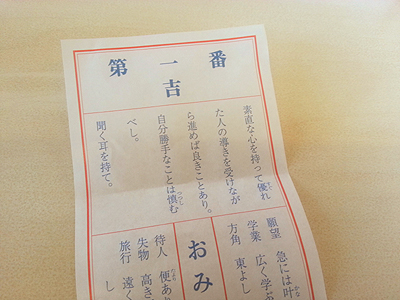 第一番
吉
素直な心を持って優れ
た人の導きを受けなが
ら進めば良きことあり。
自分勝手なことは慎む
べし。
聞く耳を持て。
願望 急には叶
学業 広く学
方角 東よし
おみ
待人 便あ
失物 高き
旅行 遠く
し